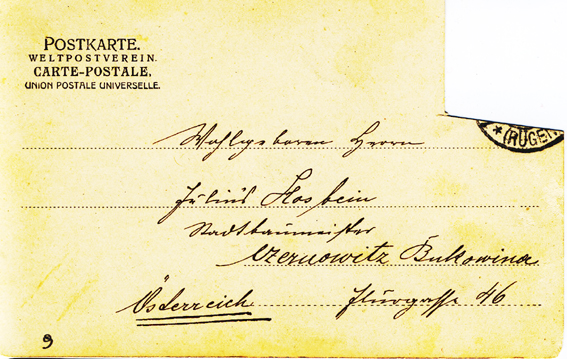 POSTKARTE.
WELTPOSTVEREIN.
CARTE-POSTALE.
UNION POSTALE UNIVERSELLE.
* (RÜGEN
Wohlgeboren Herrn
Julius
Stadtbaumeister
Czernowitz Bukowina
Österreich Flurgasse 46
9